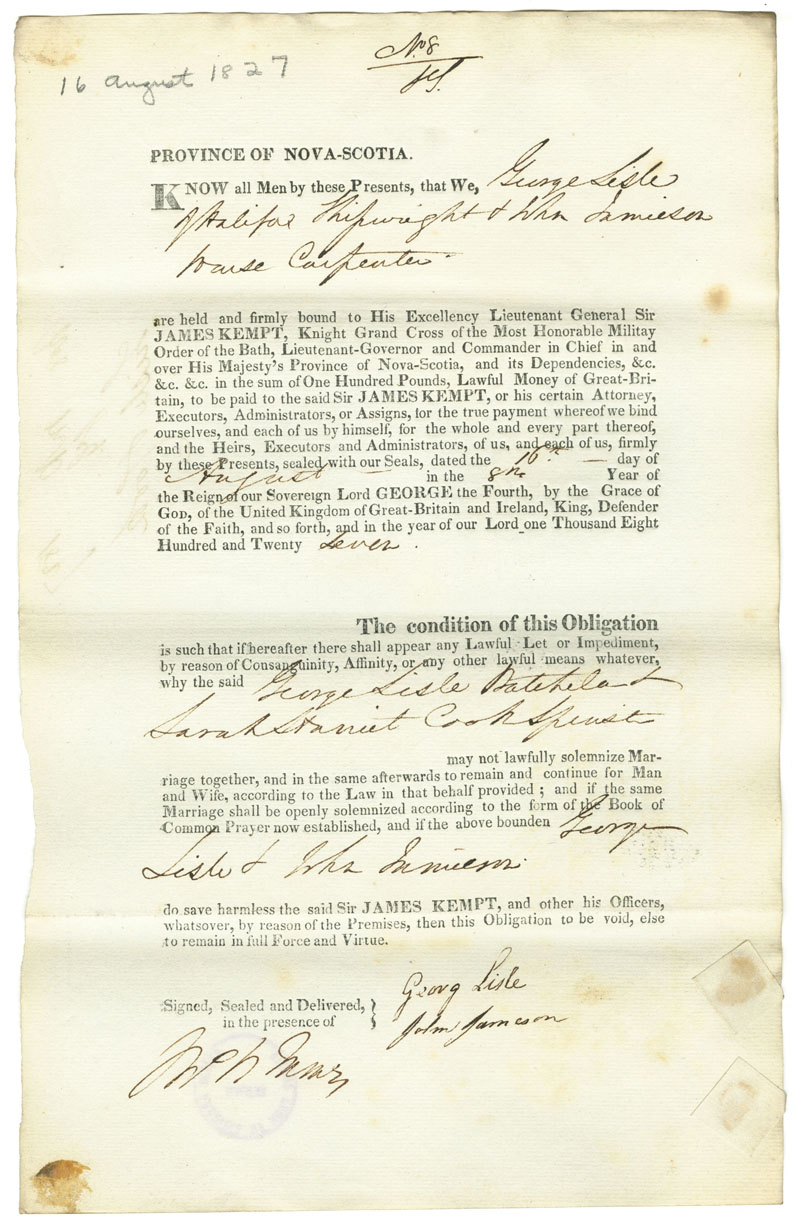 16 August 1827
No 8
PROVINCE OF NOVA-SCOTIA.
KNOW all Men by these Presents, that We, George Lisle
of Halifax Shipwright & John Jamieson
House Carpenter
are held and firmly bound to His Excellency Lieutenant General Sir
JAMES KEMPT, Knight Grand Cross of the Most Honorable Militay
Order of the Bath, Lieutenant-Governor and Commander in Chief in and
over His Majesty's Province of Nova-Scotia, and its Dependencies, &c.
&c. &c. in the sum of One Hundred Pounds, Lawful Money of Great-Bri-
tain, to be paid to the said Sir JAMES KEMPT, or his certain Attorney,
Executors, Administrators, or Assigns, for the true payment whereof we bind
ourselves, and each of us by himself, for the whole and every part thereof,
and the Heirs, Executors and Administrators, of us, and each of us, firmly
by these Presents, sealed with our Seals, dated the 16th day of
August in the 8th Year of
the Reign of our Sovereign Lord GEORGE the Fourth, by the Grace of
GOD, of the United Kingdom of Great-Britain and Ireland, King, Defender
of the Faith, and so forth, and in the year of our Lord one Thousand Eight
Hundred and Twenty Seven.
The condition of this Obligation
is such that if hereafter there shall appear any Lawful Let or Impediment,
by reason of Consanguinity, Affinity, or any other lawful means whatever,
why the said George Lisle Batchelor &
Sarah Harriet Cook Spinster
may not lawfully solemnize Mar-
riage together, and in the same afterwards to remain and continue for Man
and Wife, according to the Law in that behalf provided ; and if the same
Marriage shall be openly solemnized according to the form of the Book of
Common Prayer now established, and if the above bounden George
Lisle & John Jamieson
do save harmless the said Sir JAMES KEMPT, and other his Officers,
whatsover, by reason of the Premises, then this Obligation to be void, else
to remain in full Force and Virtue.
Georg Lisle
Signed, Sealed and Delivered,
in the presence of
John Jameson